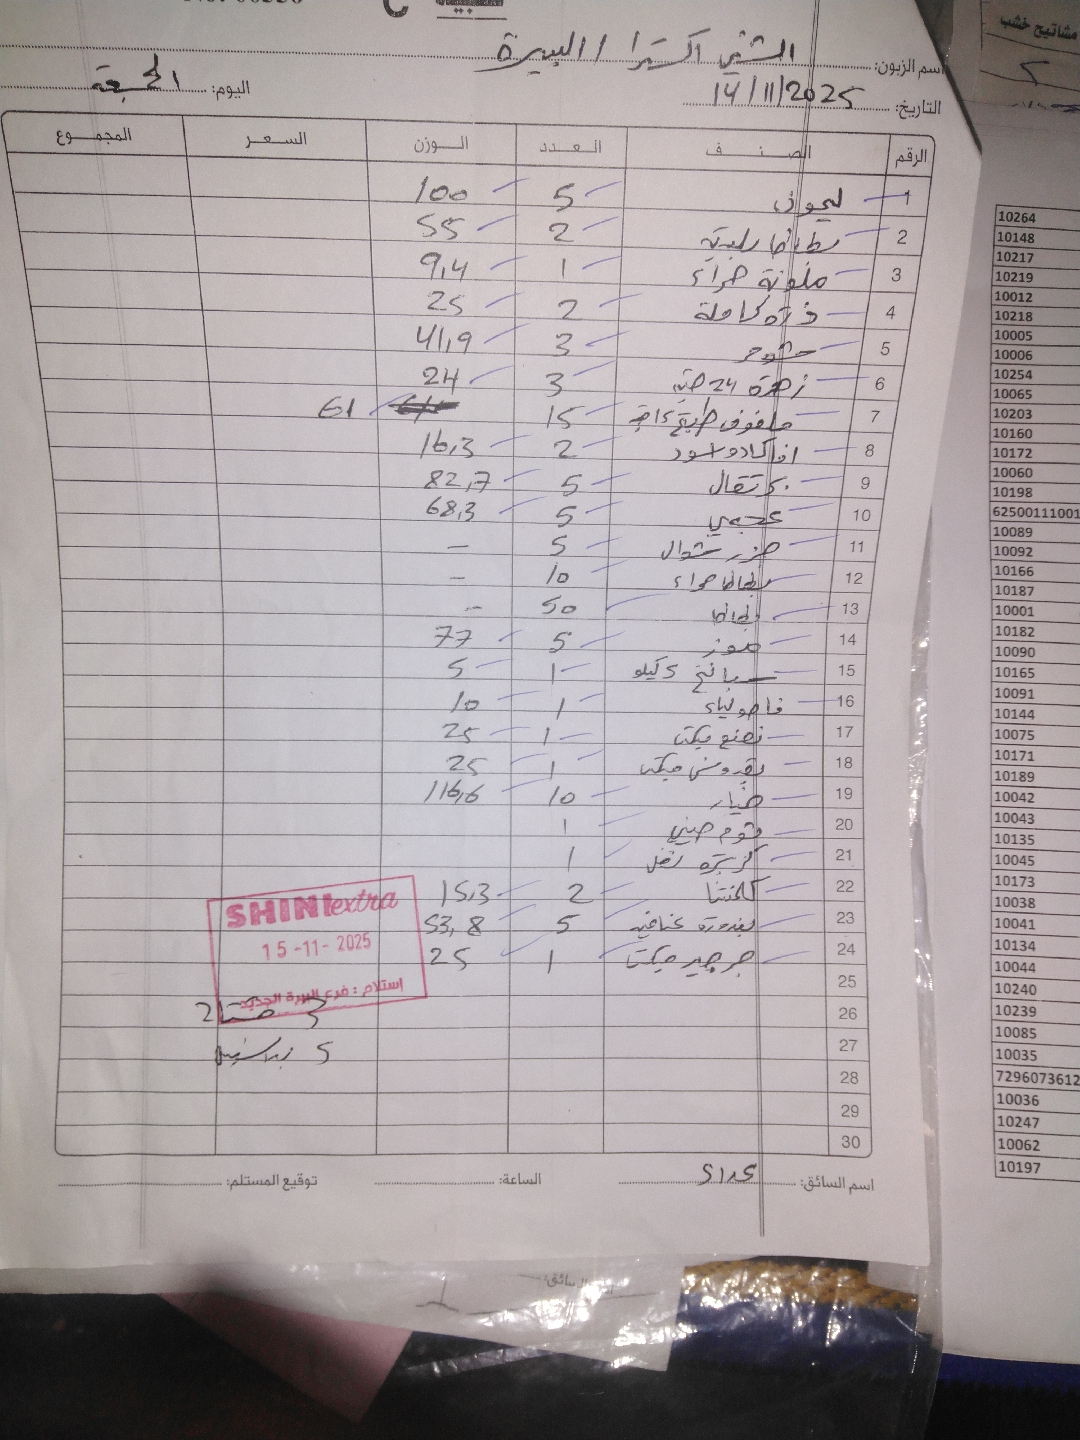 اسم الزبون: الشني اكسترا / البيرة
اليوم: الجمعة
التاريخ: 14/11/2025
الرقم الصنف العدد الوزن السعر المجموع
1 ليمون 5 100
2 بطاطا حلبية 2 55
3 ملونة حمراء 1 9,4
4 ذرة كاملة 2 25
5 3 41,9
6 زهرة 24 حبه 3 24
7 ملفوف طبيخ 15 61
8 افوكادو اسود 2 16,3
9 برتقال 5 82,7
10 عجمي 5 68,3
11 جزر شوال 5 -
12 بطاطا حمراء 10 -
13 بطاطا 50 -
14 موز 5 77
15 سبانخ 5 كيلو 1 5
16 فاصولياء 1 10
17 نعنع ميكت 1 25
18 بقدونس ميكت 1 25
19 خيار 10 116,6
20 ثوم صيني 1
21 كزبرة نخل 1
22 كلمنتينا 2 15,3
23 بندورة عناقيد 5 53,8
24 جرجير ميكت 1 25
25
26
27
28
29
30
SHINI extra
15-11-2025
استلام : فرع البيرة الجديد
اسم السائق:
الساعة:
توقيع المستلم:
مشاتيح خشب
10264
10148
10217
10219
10012
10218
10005
10006
10254
10065
10203
10160
10172
10060
10198
62500111001
10089
10092
10166
10187
10001
10182
10090
10165
10091
10144
10075
10171
10189
10042
10043
10135
10045
10173
10038
10041
10134
10044
10240
10239
10085
10035
7296073612
10036
10247
10062
10197